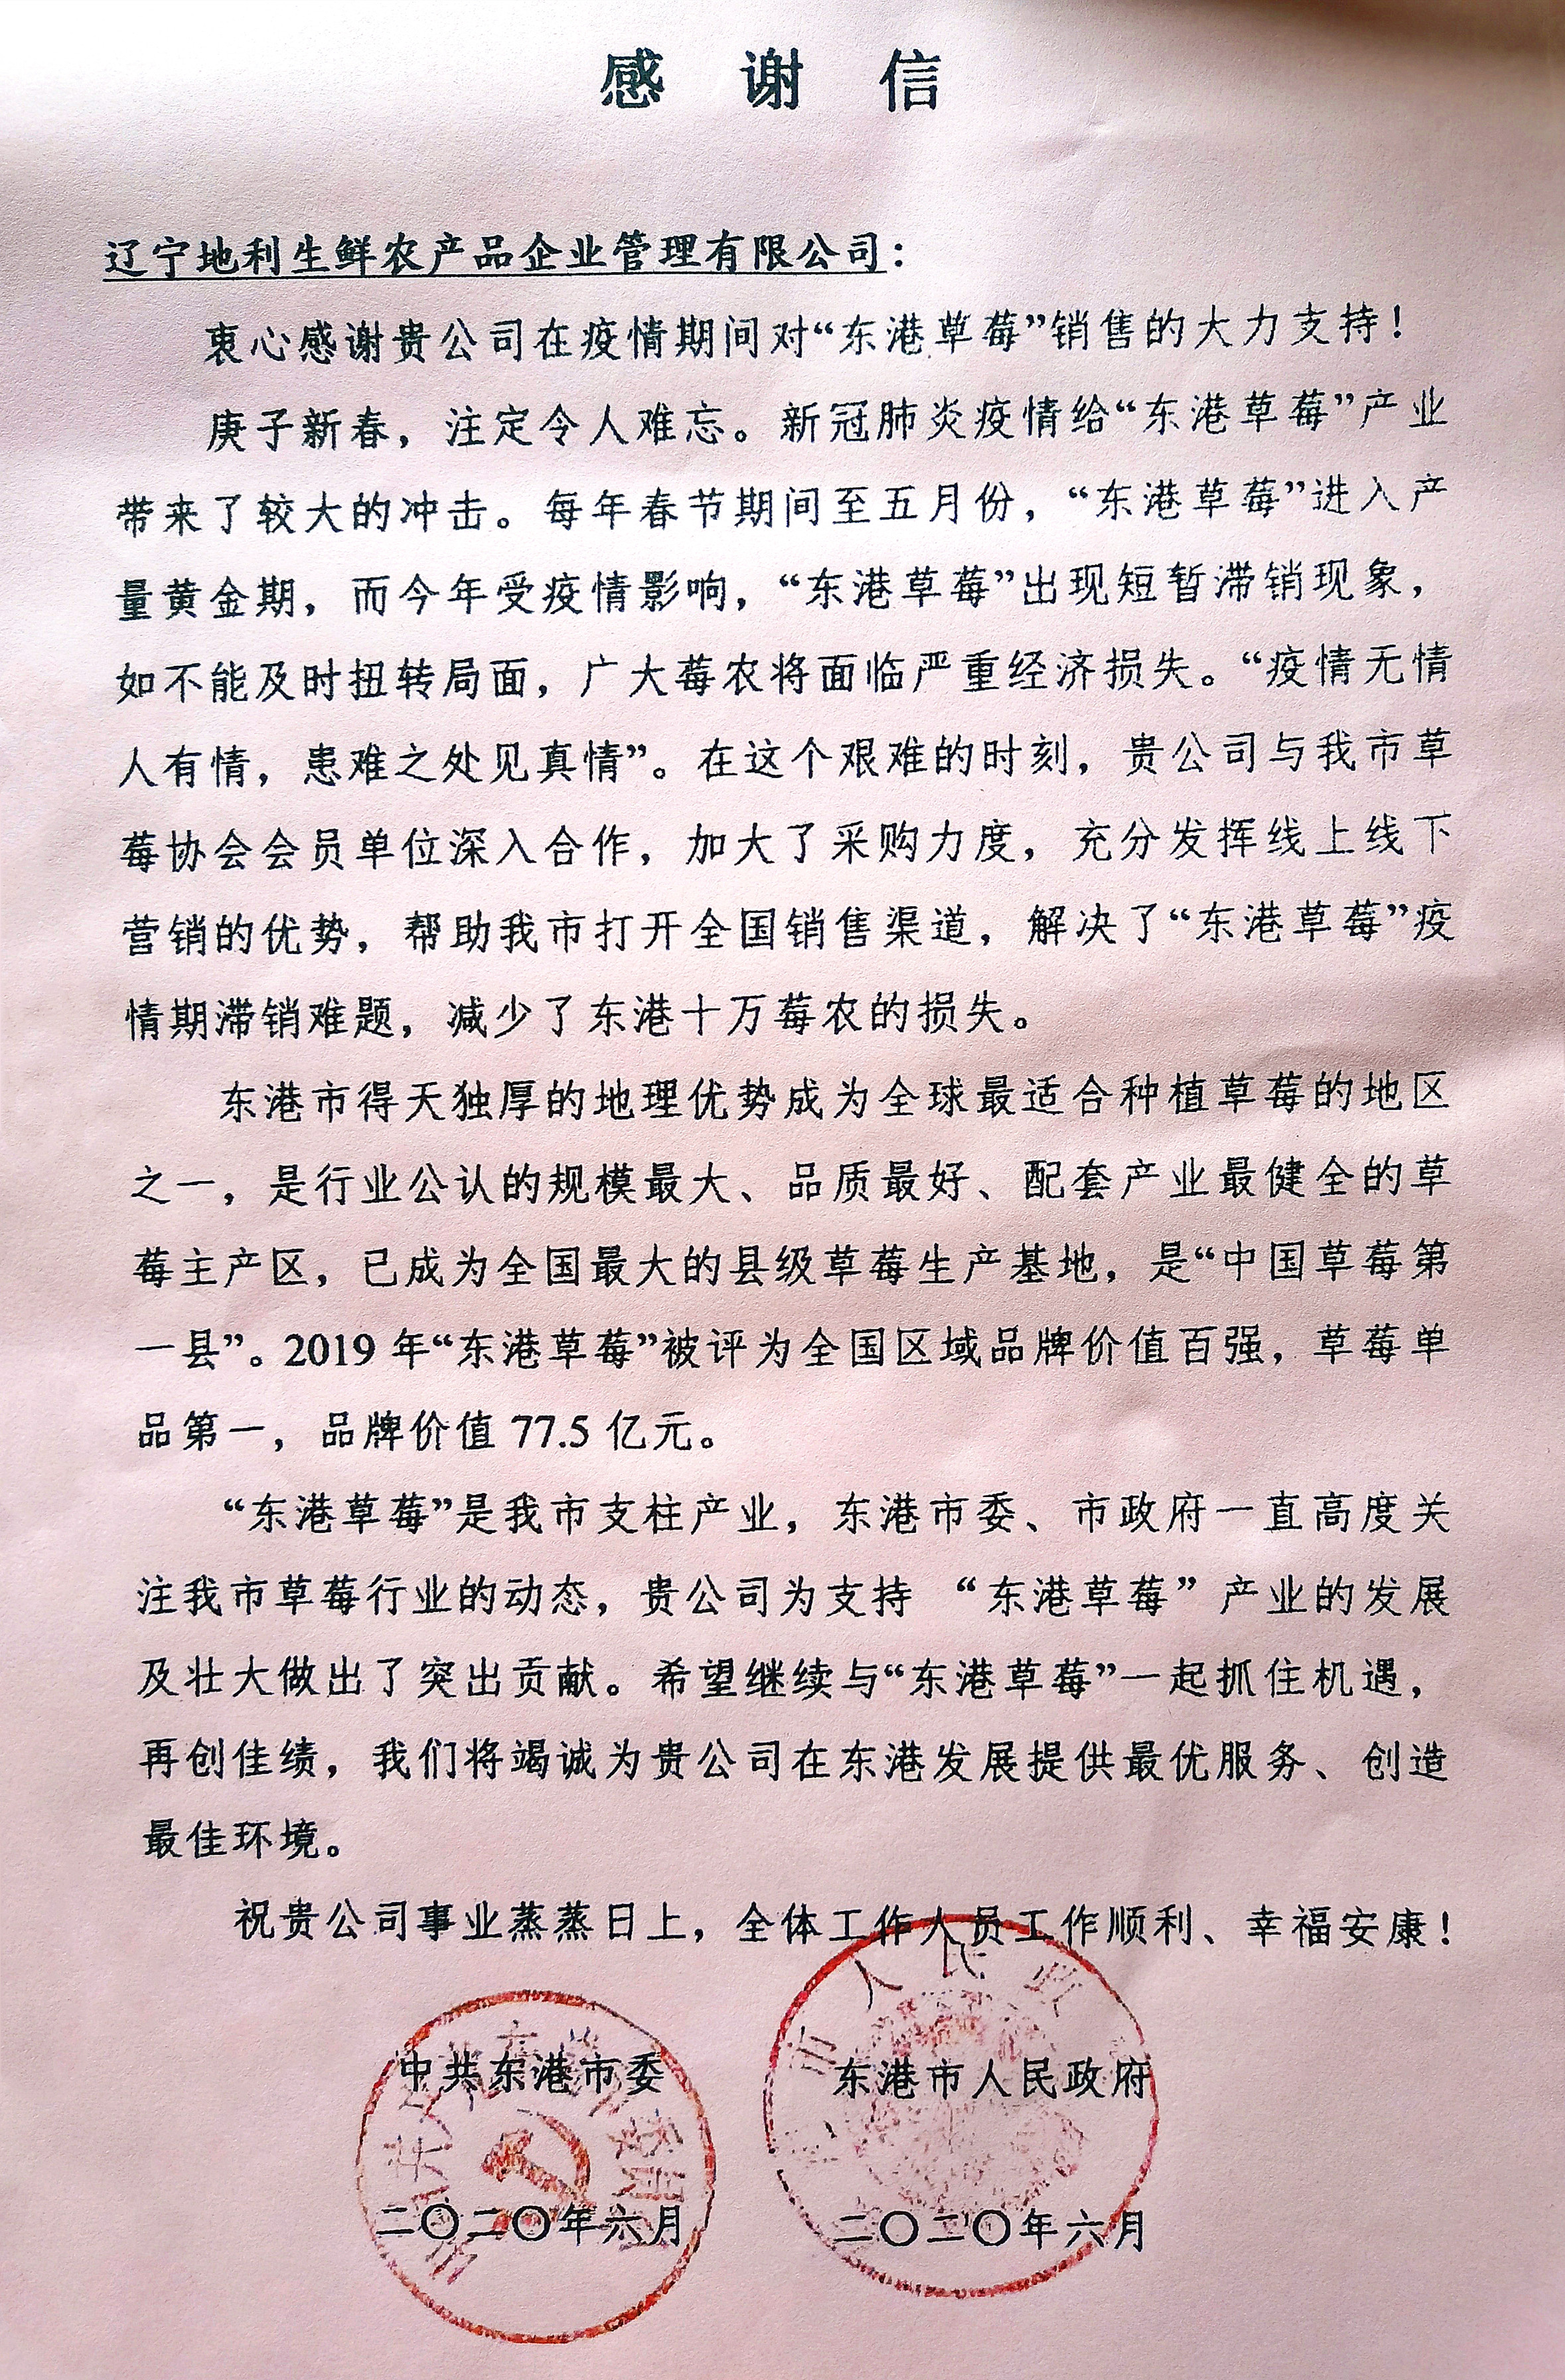 感谢信
辽宁地利生鲜农产品企业管理有限公司：
衷心感谢贵公司在疫情期间对“东港草莓”销售的大力支持！
庚子新春，注定令人难忘。新冠肺炎疫情给“东港草莓”产业
带来了较大的冲击。每年春节期间至五月份，“东港草莓”进入产
量黄金期，而今年受疫情影响，“东港草莓”出现短暂滞销现象，
如不能及时扭转局面，广大莓农将面临严重经济损失。“疫情无情
人有情，患难之处见真情”。在这个艰难的时刻，贵公司与我市草
莓协会会员单位深入合作，加大了采购力度，充分发挥线上线下
营销的优势，帮助我市打开全国销售渠道，解决了“东港草莓”疫
情期滞销难题，减少了东港十万莓农的损失。
东港市得天独厚的地理优势成为全球最适合种植草莓的地区
之一，是行业公认的规模最大、品质最好、配套产业最健全的草
莓主产区，已成为全国最大的县级草莓生产基地，是“中国草莓第
一县”。2019 年“东港草莓”被评为全国区域品牌价值百强，草莓单
品第一，品牌价值 77.5 亿元。
“东港草莓”是我市支柱产业，东港市委、市政府一直高度关
注我市草莓行业的动态，贵公司为支持 “东港草莓” 产业的发展
及壮大做出了突出贡献。希望继续与“东港草莓”一起抓住机遇，
再创佳绩，我们将竭诚为贵公司在东港发展提供最优服务、创造
最佳环境。
祝贵公司事业蒸蒸日上，全体工作人员工作顺利、幸福安康！
中共东港市委 东港市人民政府
二〇二〇年六月 二〇二〇年六月
市人民政